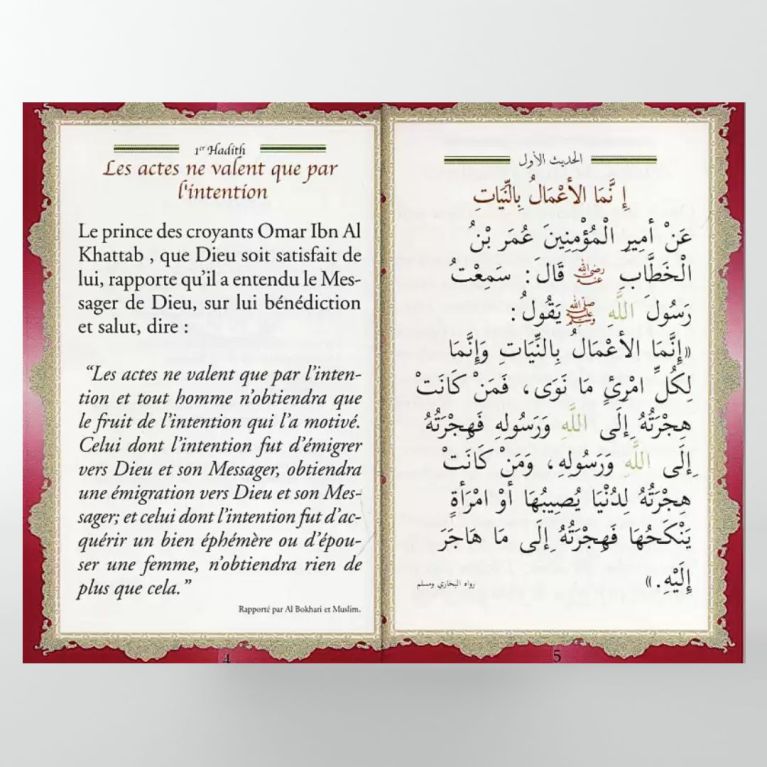 1er Hadith
Les actes ne valent que par
l'intention
Le prince des croyants Omar Ibn Al
Khattab , que Dieu soit satisfait de
lui, rapporte qu'il a entendu le Mes-
sager de Dieu, sur lui bénédiction
et salut, dire :
“Les actes ne valent que par l’inten-
tion et tout homme n’obtiendra que
le fruit de l’intention qui l’a motivé.
Celui dont l’intention fut d’émigrer
vers Dieu et son Messager, obtiendra
une émigration vers Dieu et son Mes-
sager; et celui dont l’intention fut d’ac-
quérir un bien éphémère ou d’épou-
ser une femme, n’obtiendra rien de
plus que cela.”
Rapporté par Al Bokhari et Muslim.
4
الحديث الأول
إ نَّمَا الأعْمَالُ بِالنِّيَّاتِ
عَنْ أمِيرِ الْمُؤْمِنِينَ عُمَر بْنُ
الْخَطَّابِ رضي الله عنه قَالَ : سَمِعْتُ
رَسُولَ اللَّهِ صلى الله عليه وسلم يَقُولُ :
«إِنَّمَا الأعْمَالُ بِالنِّيَّاتِ وَإِنَّمَا
لِكُلِّ امْرِئٍ مَا نَوَى، فَمَنْ كَانَتْ
هِجْرَتُهُ إِلَى اللَّهِ وَرَسُولِهِ فَهِجْرَتُهُ
إِلَى اللَّهِ وَرَسُولِهِ، وَمَنْ كَانَتْ
هِجْرَتُهُ لِدُنْيَا يُصِيبُهَا أوْ امْرَأةٍ
يَنْكَحُهَا فَهِجْرَتُهُ إِلَى مَا هَاجَرَ
إِلَيْهِ.»
رواه البخاري ومسلم
5